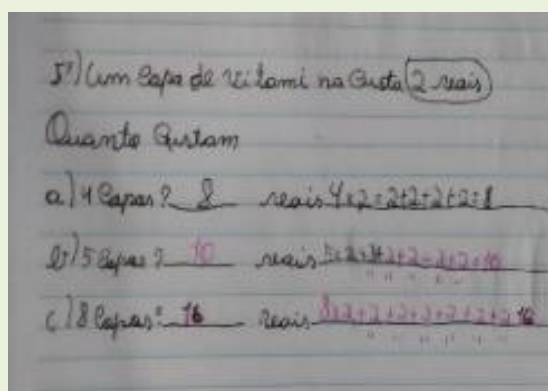 5º) Um Copo de vitami na Custa 2 reais
Quanto Custam
a) 4 Copos? 8 reais 4x2=2+2+2+2=8
b) 5 Copos? 10 reais 5x2=2+2+2+2+2=10
c) 8 Copos? 16 reais 8x2=2+2+2+2+2+2+2+2 16